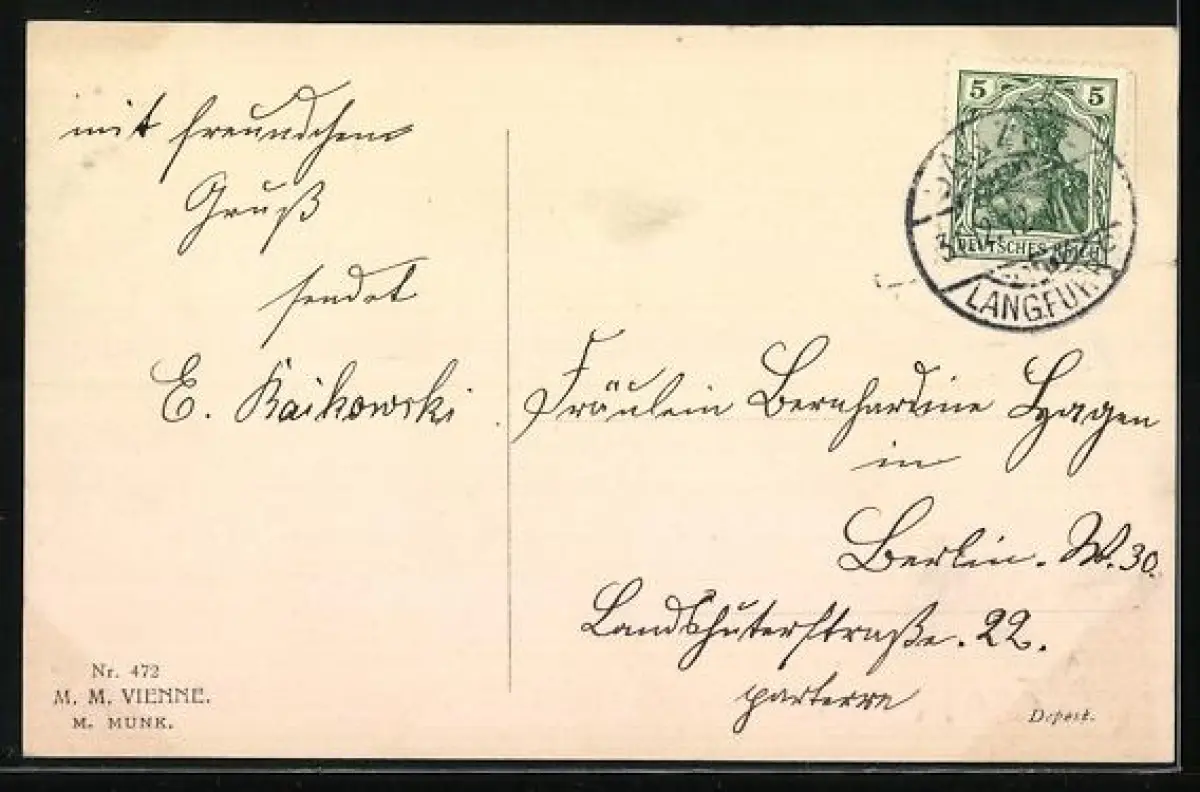 mit freundchem
Gruß
sendet
E. Kaikowski
5 5
DEUTSCHES REICH
LANGFUHR
Fräulein Bernhardine Hagen
in
Berlin. W. 30.
Landshuterstraße. 22.
parterre
Nr. 472
M. M. VIENNE.
M. MUNK.
Depest.